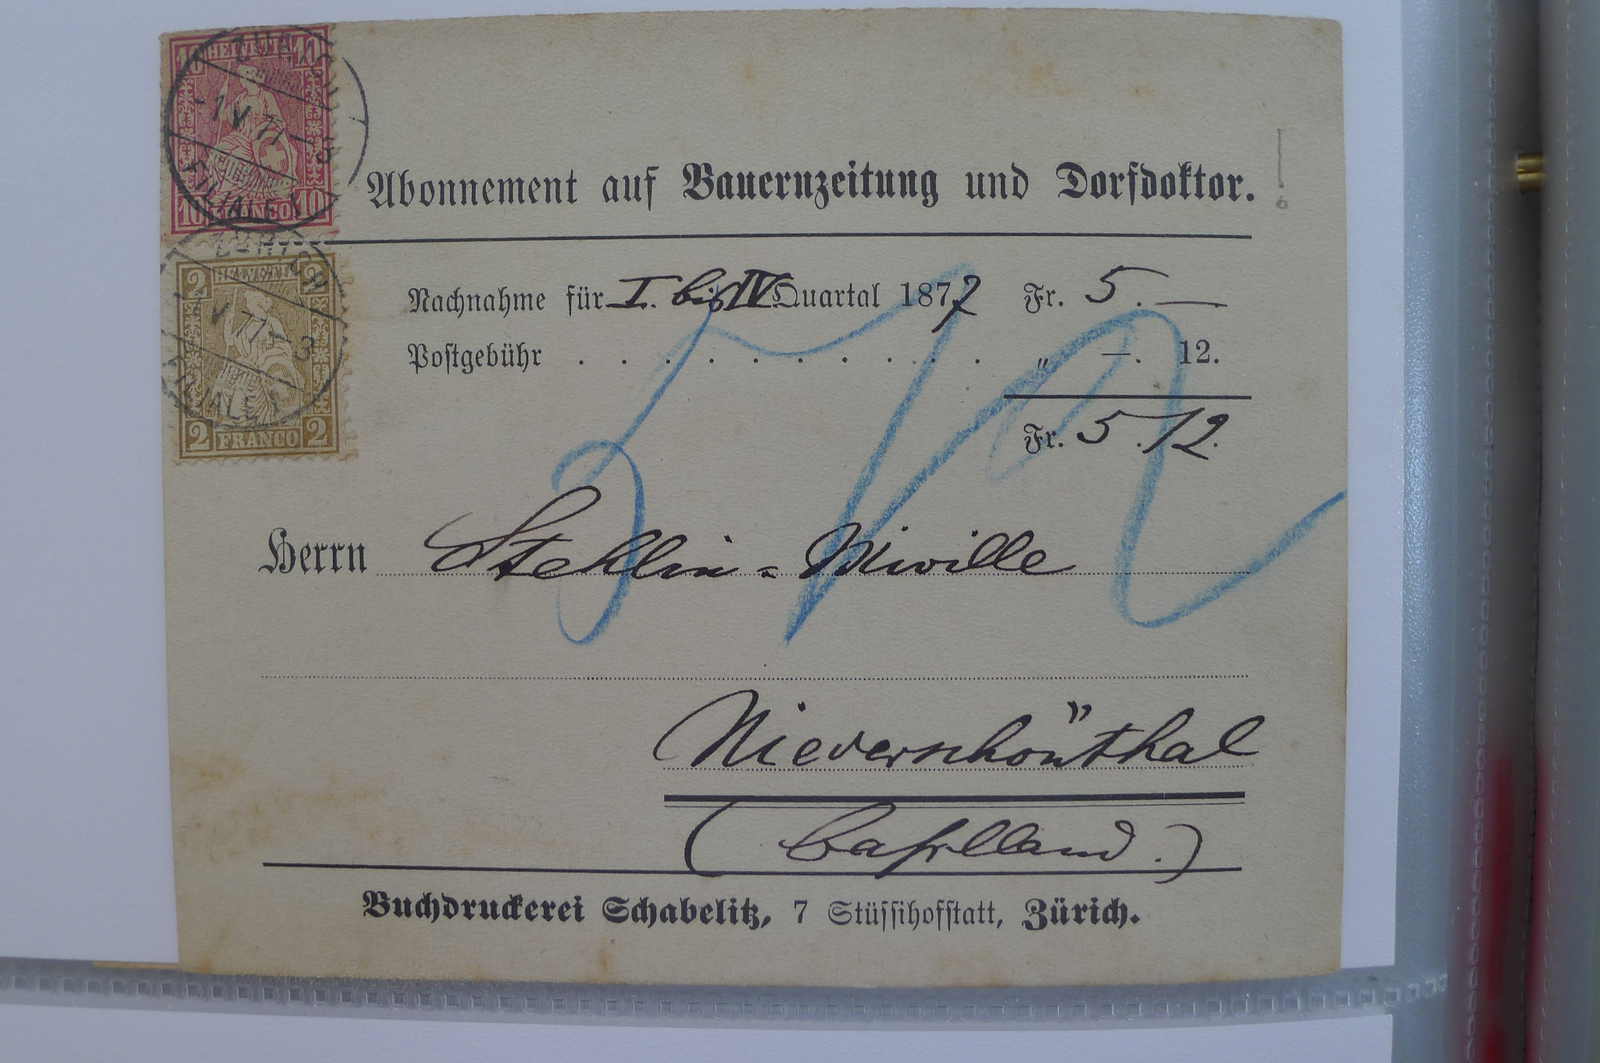 10 HELVETIA 10
10 FRANCO 10
ZÜRICH
-1 V 77-3
FILIALE
2 HELVETIA 2
2 FRANCO 2
ZÜRICH
V 77-3
FILIALE
Abonnement auf Bauernzeitung und Dorfdoktor.
Nachnahme für I. bis IV. Quartal 1877 Fr. 5.—
Postgebühr . . . . . . . . . . „ —. 12.
Fr. 5.12.
512
Herrn Stehlin-Miville
Niederschönthal
(Baselland.)
Buchdruckerei Schabelitz, 7 Stüssihofstatt, Zürich.